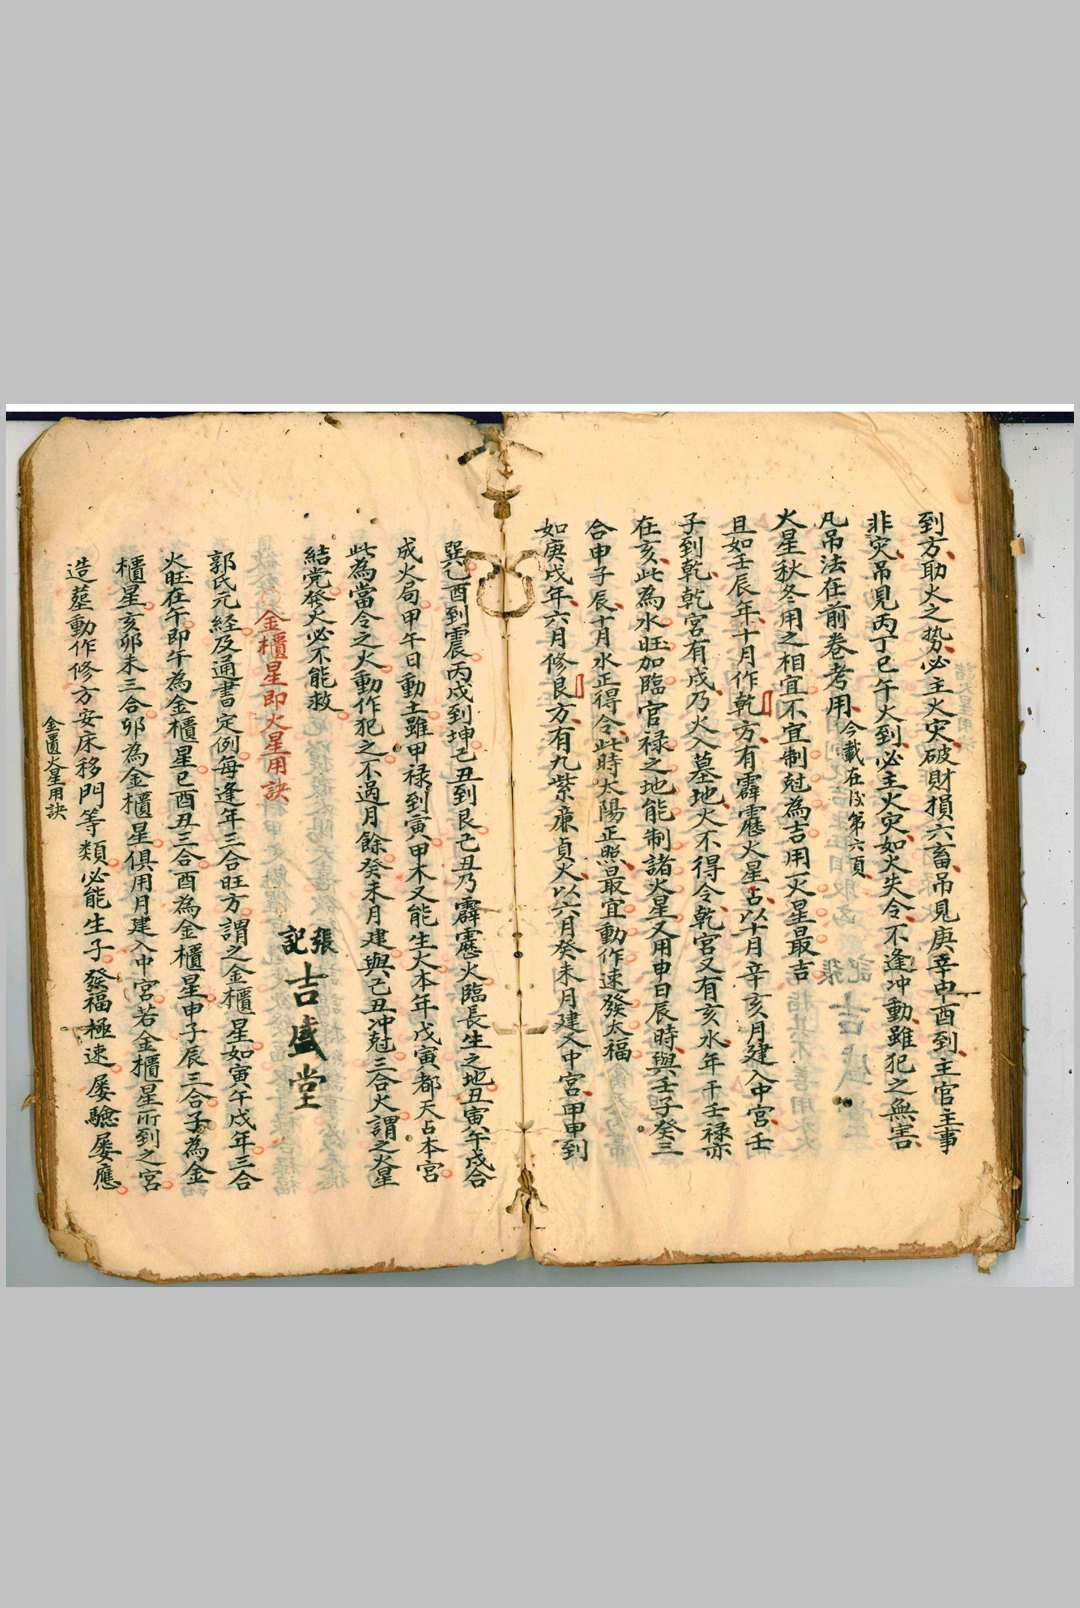 到方助火之势必主火灾破財損六畜吊見庚辛申酉到主官主事
非灾吊見丙丁巳午火到必主火灾如火失令不逢冲動雖犯之無害
凡吊法在前卷考用今載在後第六頁
火星秋冬用之相宜不宜制尅為吉用火星最吉
且如壬辰年十月作乾方有霹靂火星占以十月辛亥月建入中宮壬
子到乾乾宮有戌乃火入墓地火不得令乾宮又有亥水年干壬禄亦
在亥此為水旺加臨官禄之地能制諸火星又用申日辰時與壬子癸三
合申子辰十月水正得令此時太陽正照最宜動作速發大福
如庚戌年六月修艮方有九紫亷貞火以六月癸未月建入中宮甲申到
巽乙酉到震丙戌到坤己丑到艮己丑乃霹靂火臨長生之地丑寅午戌合
成火局甲午日動土雖甲禄到寅甲木又能生火本年戊寅都天占本宮
此為當令之火動作犯之不過月餘癸未月建與己丑冲尅三合火謂之火星
結党發火必不能救
張記吉盛堂
金櫃星即火星用訣
郭氏元経及通書定例每逢年三合旺方謂之金櫃星如寅午戌年三合
火旺在午即午為金櫃星巳酉丑三合酉為金櫃星申子辰三合子為金
櫃星亥卯未三合卯為金櫃星俱用月建入中宮若金櫃星所到之宮
造塟動作修方安床移門等類必能生子發福極速屡驗屡應
金匱火星用訣